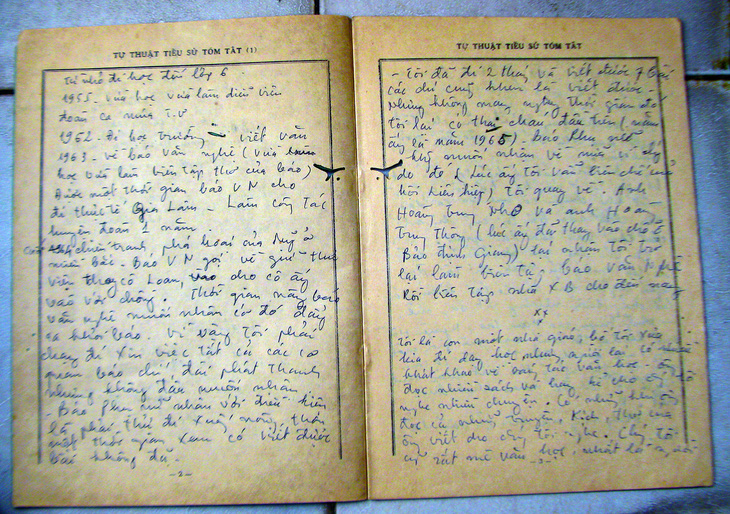 TỰ THUẬT TIỂU SỬ TÓM TẮT (1)
Từ nhỏ đi học đến lớp 6.
1955 - vừa học vừa làm diễn viên
đoàn ca múa T.Ư
1962 - Đi học trường viết văn
1963 - về báo văn nghệ (vừa
học vừa làm biên tập thơ của báo)
Được một thời gian báo VN cho
đi thực tế Gia Lâm - Làm công tác
huyện đoàn 2 năm.
chiến tranh phá hoại của Mỹ ở
miền Bắc - Báo VN gọi về giữ thư
viện thay cô Loan, cho cô ấy
vào với chồng. Thời gian này báo
văn nghệ muốn nhân cơ đó đẩy
ra khỏi báo. Vì vậy tôi phải
chạy đi xin việc tất cả các cơ
quan báo chí đài phát thanh
nhưng không đâu muốn nhận.
- Báo Phụ nữ nhận với điều kiện
là phải thử đi xuống nông thôn
một thời gian xem có viết được
báo không đã.
-2-
TỰ THUẬT TIỂU SỬ TÓM TẮT
- Tôi đã đi 2 tháng và viết được 7 bài
các chị cũng khen là viết được -
Nhưng không may ngay thời gian đó
tôi lại có thai cháu đầu tiên (năm
ấy là năm 1965). Báo Phụ nữ
không muốn nhận về nữa vì lý
do đó (Lúc ấy tôi vẫn biên chế ở
hội liên hiệp) Tôi quay về. Anh
Hoàng Trung Nho và anh Hoàng
Trung Thông (lúc ấy đã thay vào chỗ
Bảo Định Giang) lại nhận tôi trở
lại làm biên tập báo Văn Nghệ
Rồi biên tập nhà XB cho đến nay
xx
x
Tôi là con một nhà giáo, bố tôi xưa
kia đi dạy học nhưng người lại có nhiều
khát khao về sáng tác văn học - ông
đọc nhiều sách và hay kể cho chúng tôi
nghe nhiều chuyện. Có những hôm ông
đọc cả những truyện, kịch, thơ của
ông viết cho chúng tôi nghe. Chị tôi
cũng rất mê văn học, nhất là người